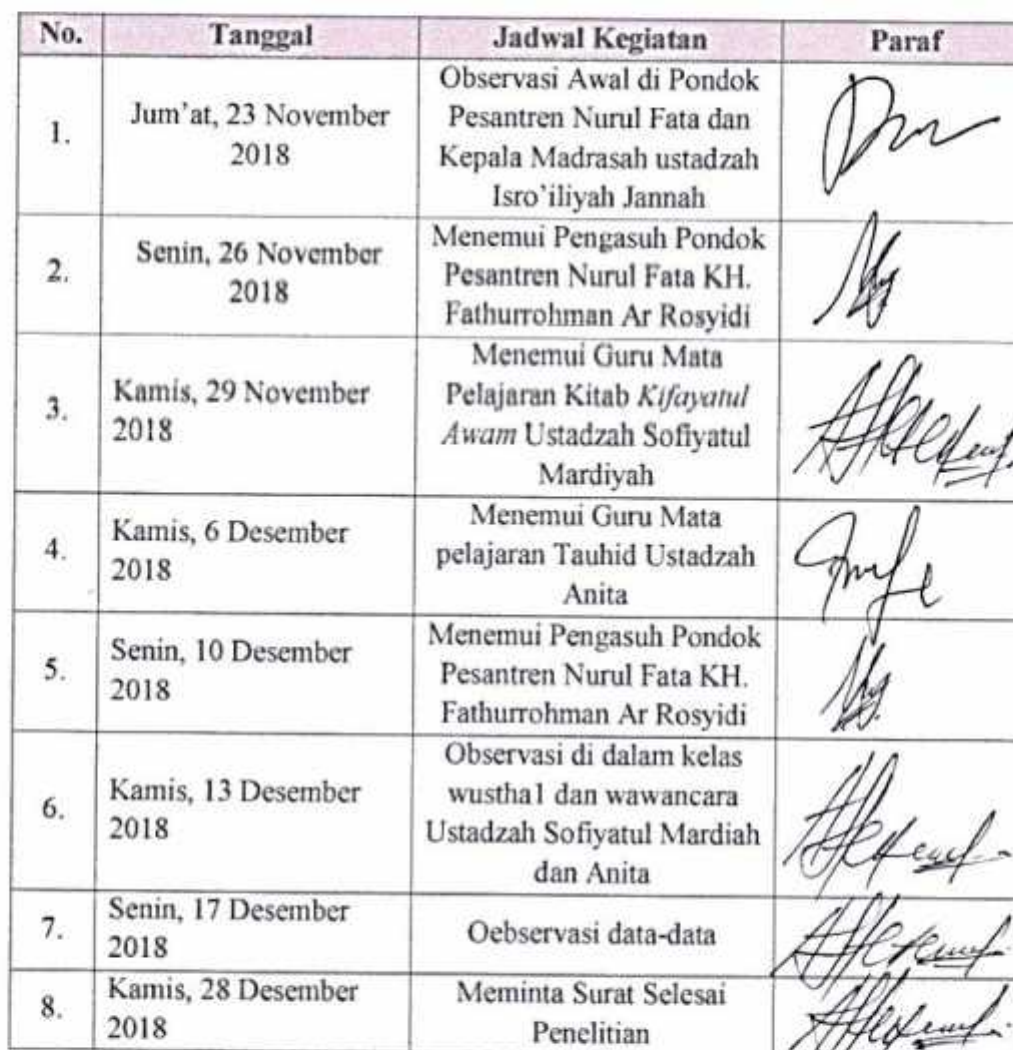 No. Tanggal Jadwal Kegiatan Paraf
1. Jum'at, 23 November
2018
Observasi Awal di Pondok
Pesantren Nurul Fata dan
Kepala Madrasah ustadzah
Isro'iliyah Jannah
2. Senin, 26 November
2018
Menemui Pengasuh Pondok
Pesantren Nurul Fata KH.
Fathurrohman Ar Rosyidi
3. Kamis, 29 November
2018
Menemui Guru Mata
Pelajaran Kitab Kifayatul
Awam Ustadzah Sofiyatul
Mardiyah
4. Kamis, 6 Desember
2018
Menemui Guru Mata
pelajaran Tauhid Ustadzah
Anita
5. Senin, 10 Desember
2018
Menemui Pengasuh Pondok
Pesantren Nurul Fata KH.
Fathurrohman Ar Rosyidi
6. Kamis, 13 Desember
2018
Observasi di dalam kelas
wustha1 dan wawancara
Ustadzah Sofiyatul Mardiah
dan Anita
7. Senin, 17 Desember
2018
Oebservasi data-data
8. Kamis, 28 Desember
2018
Meminta Surat Selesai
Penelitian